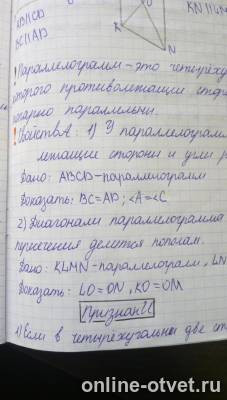 AB||CD
BC||AD
KN||LM
K
N
! Параллелограмм - это четырёху
которого противолежащие стор
попарно параллельны.
! Свойства: 1) У параллелограм
лежащие стороны и углы р
Дано: ABCD - параллелограмм
Доказать: BC=AD; ∠A=∠C
2) Диагонали параллелограмма
пересечения делятся пополам.
Дано: KLMN - параллелограмм, LN
Доказать: LO=ON, KO=OM
ПризнакИ
1) Если в четырёхугольнике две ст
online-otvet.ru